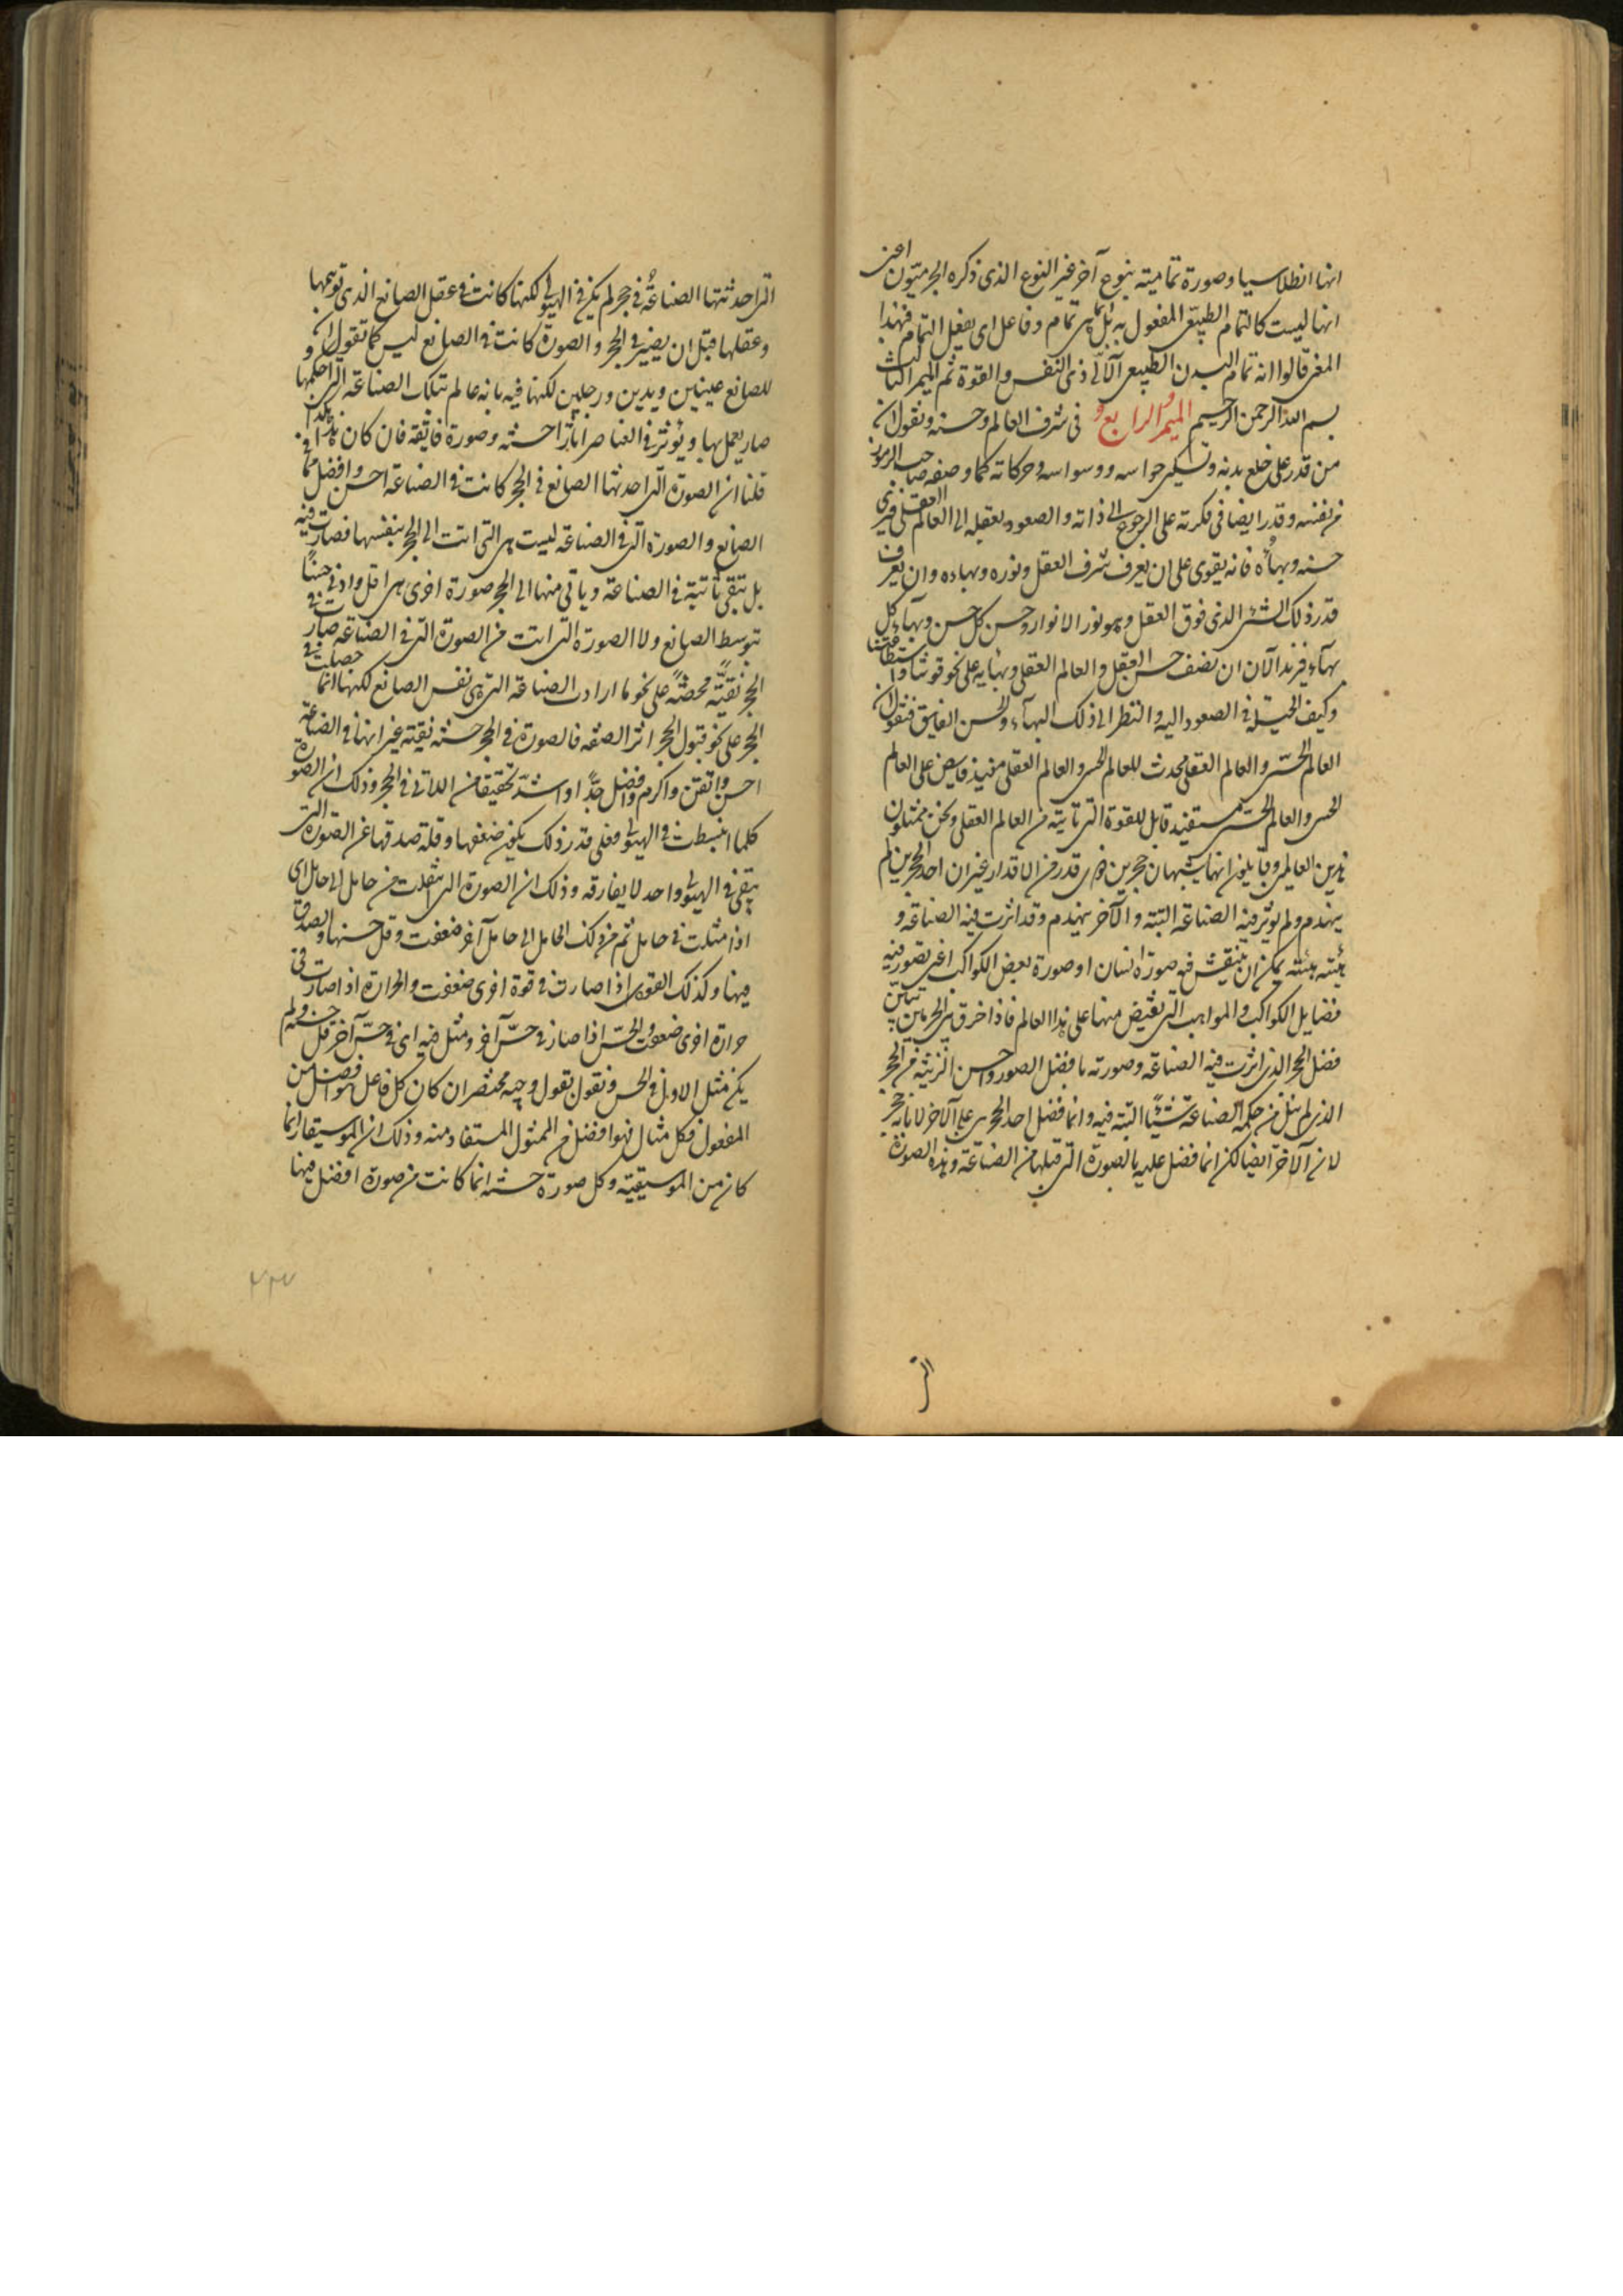 انها انطلاسيا وصورة تمامية بنوع آخر غير النوع الذى ذكره الجرميّون اعنى
انها ليست كالتمام الطبيعى المفعول به بل هى تمام وفاعل اى يفعل التمام فبهذا
المعنى قالوا انه تمام البدن الطبيعى الآلى ذى النفس والقوة تم الميمر الثالث
بسم الله الرحمن الرحيم الميمر الرابع فى شرف العالم وحسنه ونقول ان
من قدر على خلع بدنه وتسكين حواسه ووسواسه وحركاته كما وصفه صاحب الرموز
من نفسه وقدر ايضا فى فكرته على الرجوع الى ذاته والصعود بعقله الى العالم العقلى فيرى
حسنه وبهاؤه فانه يقوى على ان يعرف شرف العقل ونوره وبهاده وان يعرف
قدر ذلك الشئ الذى فوق العقل وهو نور الانوار وحسن كل حسن وبهاء كل
بهاء فنريد الآن ان نصف حسن العقل والعالم العقلى وبهائه على نحو قوتنا واستطاعتنا
وكيف الحيلة فى الصعود اليه والنظر الى ذلك البهاء والحسن الفايق فنقول ان
العالم الحسى والعالم العقلى محدث للعالم الحسى والعالم العقلى مفيد فايض على العالم
الحسى والعالم الحسى مستفيد قابل للقوة التى تاتيه من العالم العقلى ونحن ممثلون
هذين العالمين وقايلون انهما يشبهان حجرين ذوى قدر من الاقدار غير ان احد الحجرين لم
يهندم ولم يؤثر فيه الصناعة البتة والآخر يهندم وقد اثرت فيه الصناعة و
هيئته هيئة يمكن ان ينقش فيه صورة انسان او صورة بعض الكواكب اعنى تصور فيه
فضايل الكواكب والمواهب التى تفيض منها على هذا العالم فاذا فرق بين الحجرين تبين
فضل الحجر الذى اثرت فيه الصناعة وصورته بافضل الصور واحسن الزينة من الحجر
الذى لم ينل من حكمة الصناعة شيئًا البتة فيه وانما فضل احد الحجرين على الآخر لا بانه حجر
لان الآخر ايضا لكن انما فضل عليه بالصورة التى قبلها من الصناعة وهذه الصورة
التى
التى احدثتها الصناعة فى حجر لم يكن فى الهيولى لكنها كانت فى عقل الصانع الذى توهمها
وعقلها قبل ان يصير فى الحجر والصورة كانت فى الصانع ليس كما نقول ان
للصانع عينين ويدين ورجلين لكنها فيه بانه عالم بتلك الصناعة التى احكمها و
صار يعمل بها ويؤثر فى العناصر آثارا حسنة وصورة فايقة فان كان هذا هكذا
قلنا ان الصورة التى احدثتها الصانع فى الحجر كانت فى الصناعة احسن وافضل مما فى
الصانع والصورة التى فى الصناعة ليست هى التى اتت الى الحجر بنفسها فصارت فيه
بل تبقى ثابتة فى الصناعة وياتى منها الى الحجر صورة اخرى هى اقل وادنى حسنًا
بتوسط الصانع ولا الصورة التى اتت من الصورة التى فى الصناعة صارت فى
الحجر نقيّة محضةً على نحو ما ارادت الصناعة التى هى نفس الصانع لكنها انما حصلت فى
الحجر على نحو قبول الحجر اثر الصنعه فالصورة فى الحجر حسنة نقية غير انها فى الصناعة
احسن واتقن واكرم وافضل جدًّا واشد تحقيقا من اللاتى فى الحجر وذلك ان الصورة
كلما انبسطت فى الهيولى فعلى قدر ذلك يكون ضعفها وقلة صدقها عن الصورة التى
تبقى فى الهيولى واحد لا يفارقه وذلك ان الصورة التى انتقلت من حامل الى حامل اى
اذا مثلت فى حامل ثم من ذلك الحامل الى حامل آخر ضعفت وقل حسنها والصدق
فيها وكذلك القوى اذا صارت فى قوة اخرى ضعفت والحرارة اذا صارت فى
حرارة اخرى ضعفت والحس اذا صار فى حسّ آخر ومثل فيه اى فى حسّ آخر قل حسنه ولم
يكن مثل الاول فى الحسن ونقول بقول وجيه مختصر ان كان كل فاعل هو افضل من
المفعول فكل مثال فهو افضل من الممثول المستفاد منه وذلك ان الموسيقار انما
كان من الموسيقية وكل صورة حسنة انما كانت من صورة افضل منها